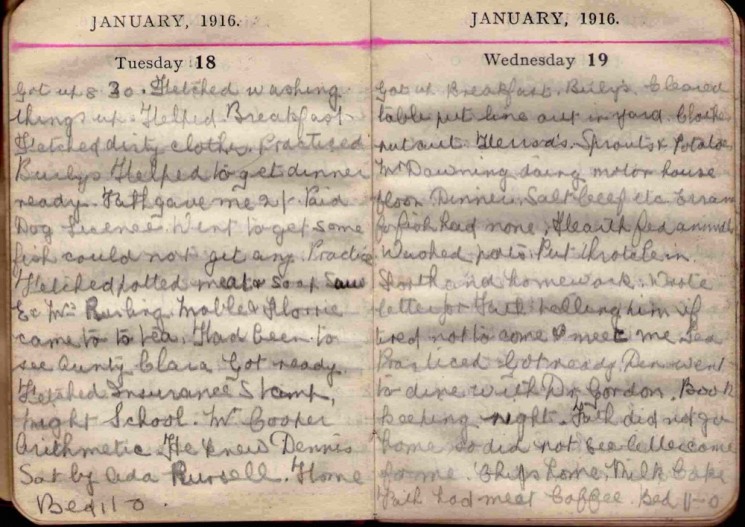 JANUARY, 1916.
Tuesday 18
Got up 8.30. Fetched washing
things up. Helped Breakfast
Fetched dirty clothes. Practised
Helped to get dinner
ready. Fath gave me 2/- Paid
Dog License. Went to get some
fish could not get any. Practice
Fetched potted meat & soap
Mrs Mable & Florrie
came to to tea. Had been to
see Aunty Clara. Got ready.
Fetched Insurance Stamp,
night School. Mr Cooper
Arithmetic. He knew Dennis
Sat by Ada Russell. Home
Bed 11-0.
JANUARY, 1916.
Wednesday 19
Got up Breakfast. Cleared
table put line out in yard. Clothes
put out. Sprouts & Potatoes
Mr Downing doing motor house
floor Dinner. Salt beef etc
for fish had none. fed
Washed pots. Put in.
Shorthand homework. Wrote
letter for Fath telling him if
tired not to come & meet me. Tea
Practiced Got ready. Den went
to dine with Dr. Gordon. Book
Keeping night. Fath did not go
home so did not see letter come
for me. Chips home. Milk Cake
Fath had meat Coffee. Bed 11-0